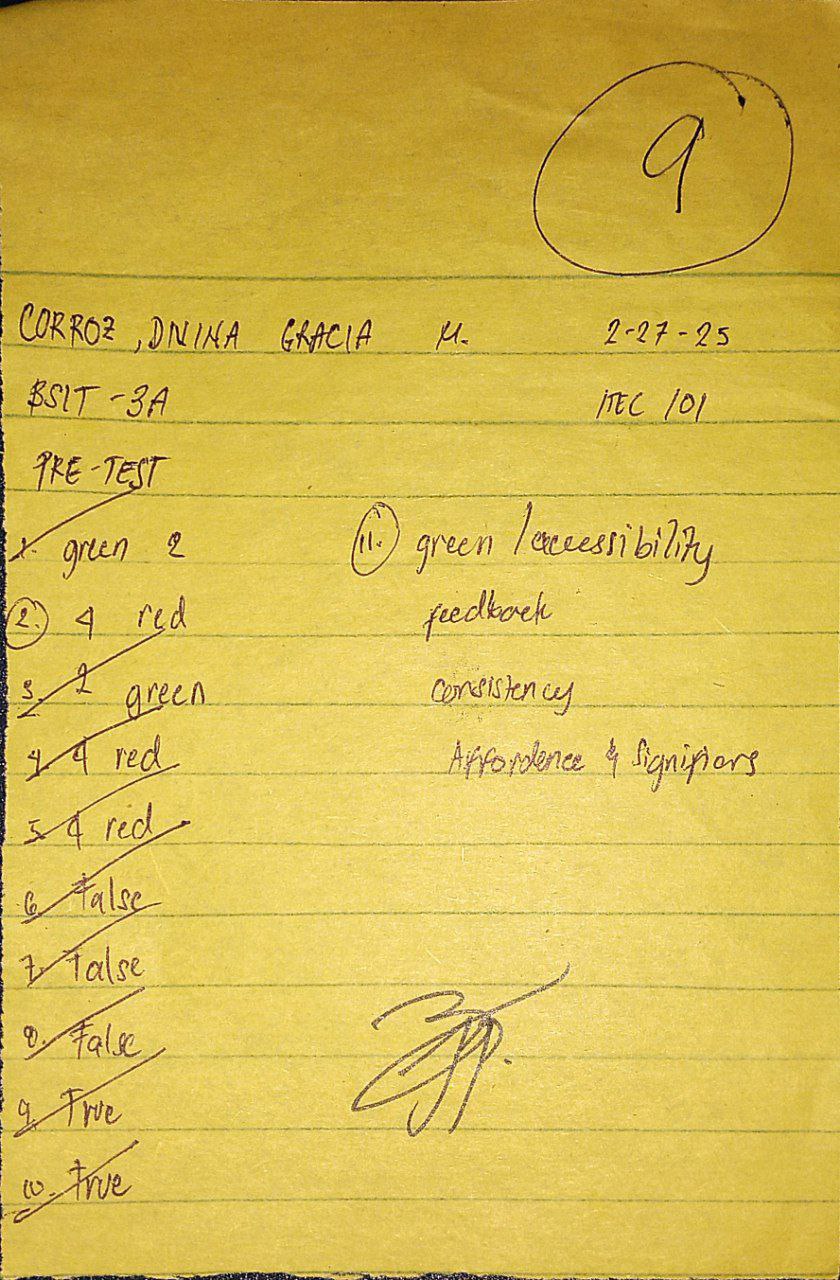 9
CORROZ, DNINA GRACIA M. 2-27-25
BSIT -3A ITEC 101
PRE-TEST
1. green 2
2. 4 red
3. 2 green
4. 4 red
5. 4 red
6. False
7. False
8. False
9. True
10. True
11. green / accessibility
feedback
consistency
Affordence & Signifiers